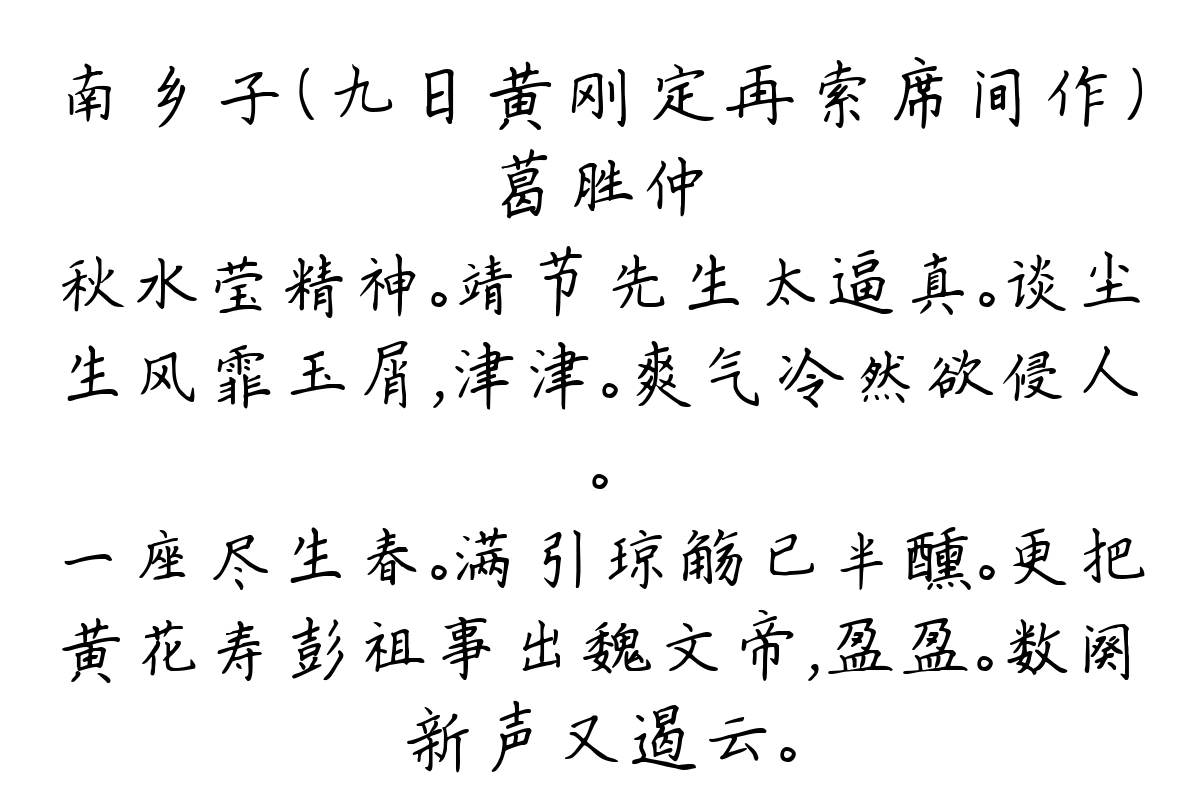 南乡子(九日黄刚定再索席间作)
葛胜仲
秋水莹精神。靖节先生太逼真。谈尘
生风霏玉屑,津津。爽气冷然欲侵人
。
一座尽生春。满引琼觞已半醺。更把
黄花寿彭祖事出魏文帝,盈盈。数阕
新声又遏云。